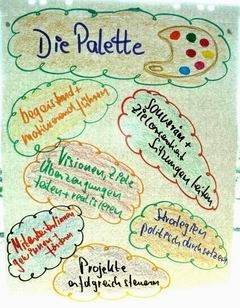 Die Palette
begeisternd +
motivierend führen
souverän +
zielorientiert
Sitzungen leiten
Visionen, Ziele
Überzeugungen
leben + realisieren
MitarbeiterInnen
gewinnen +
fördern
Strategien
politisch durchsetzen
Projekte
erfolgreich steuern